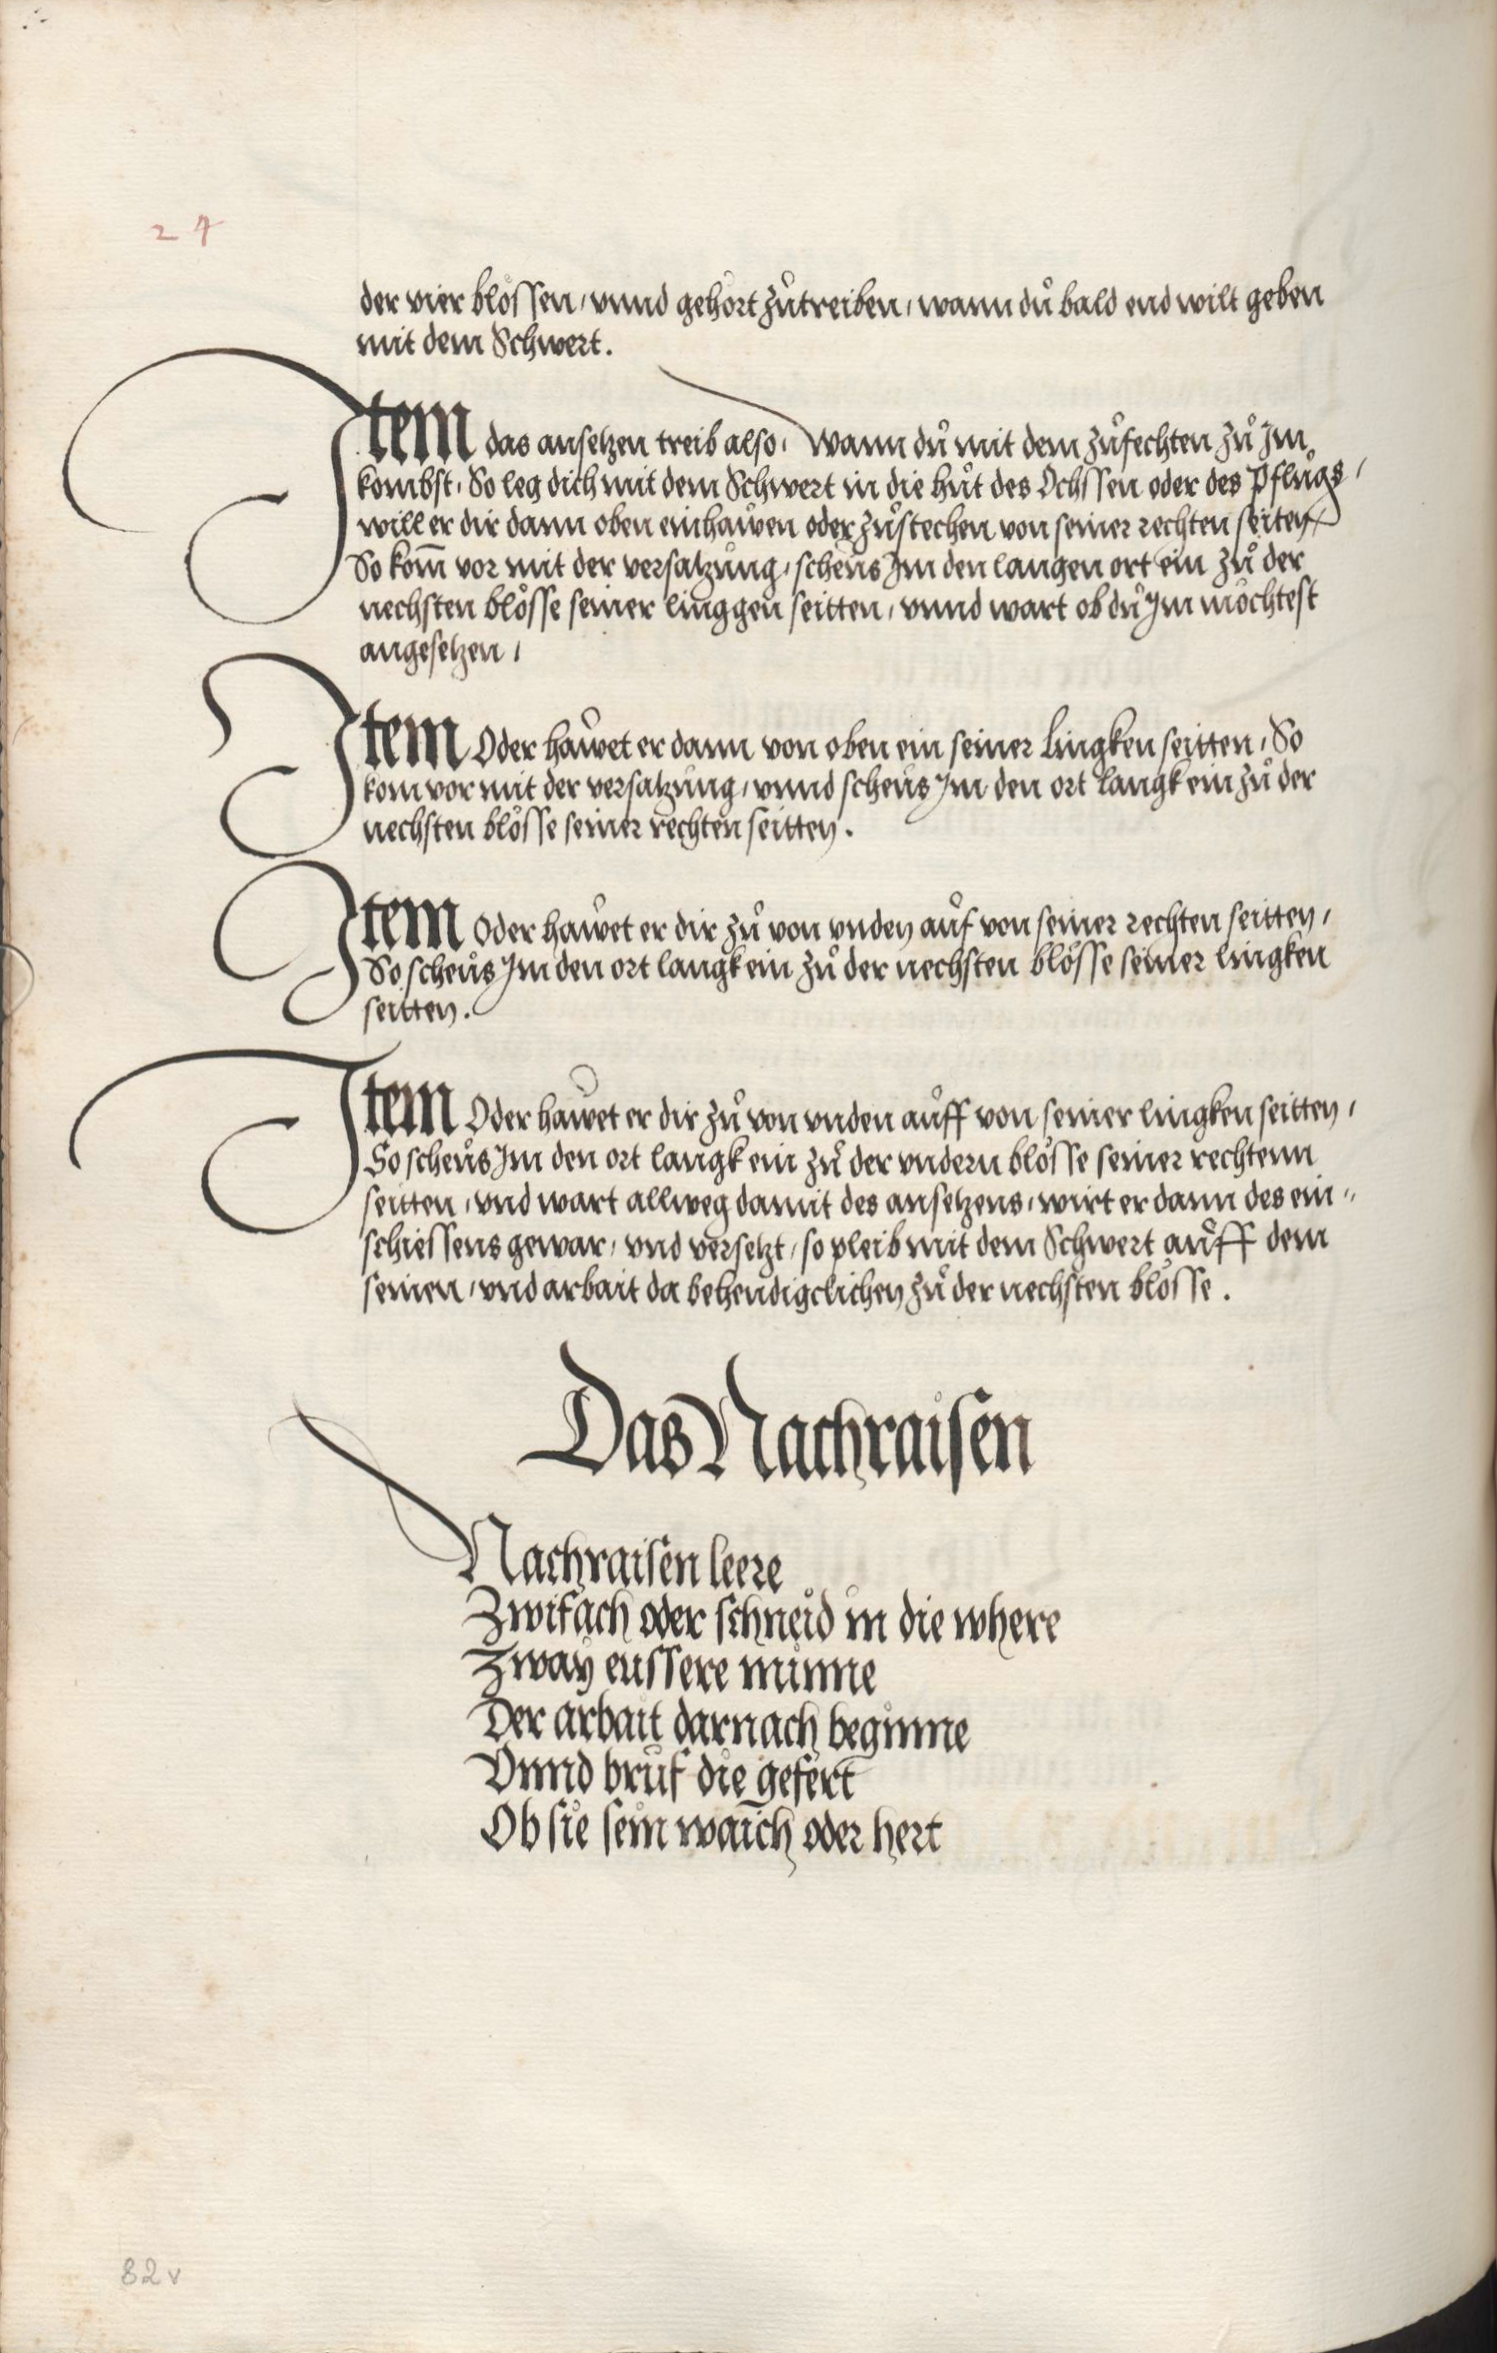 24
der vier blössen, vnnd gehört zůtreiben, wann dů bald end wilt geben
mit dem Schwert.
Item das ansetzen treib also, Wann dů mit dem zůfechten zů Im
kombst, So leg dich mit dem Schwert in die hůt des Ochssen oder des Pflůgs,
will er dir dann oben einhawen oder zůstechen von seiner rechten seiten
So kom̄ vor mit der versatzůng, scheůs Im den langen ort ein zů der
nechsten blösse seiner linggen seitten, vnnd wart ob dů Im möchtest
angesetzen,
Item Oder hawet er dann von oben ein seiner Lingken seitten, So
kom vor mit der versatzůng, vnnd scheůs Im den ort langk ein zů der
nechsten blösse seiner rechten seitten.
Item Oder hawet er dir zů von vnden aůf von seiner rechten seitten,
So scheůs Im den ort langk ein zů der nechsten blösse seiner lingken
seitten.
Item Oder hawet er dir zů von vnden aůff von seiner lingken seitten,
So scheůs Im den ort langk ein zů der vndern blösse seiner rechtenn
seitten, vnd wart allweg damit des ansetzens, wirt er dann des ein„
schiessens gewar, vnd versetzt, so pleib mit dem Schwert aůff dem
seinen, vnd arbait da behendigclichen zů der nechsten blösse.
Das Nachraisen
Nachraisen leere
Zwifach oder schneid in die where
Zway eussere minne
Der arbait darnach beginne
Vnnd brůf die gefert
Ob sie sein waich oder hert
82v